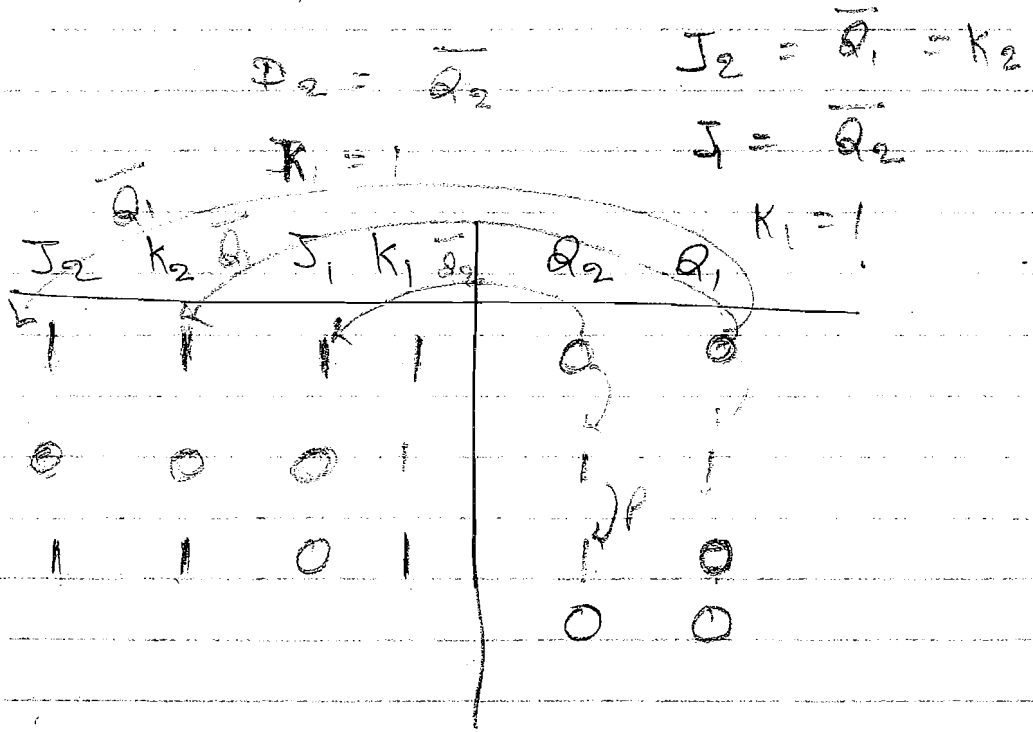 J₂ = Q̅₁ = K₂
D₂ = Q̅₂
J₁ = Q̅₂
K₁ = 1
Q̅₁ K₁ = 1
J₂ K₂ Q̅₁ J₁ K₁ Q̅₂ Q₂ Q₁
1 1 1 1 0 0
0 0 0 1 1 1
1 1 0 1 1 0
0 0